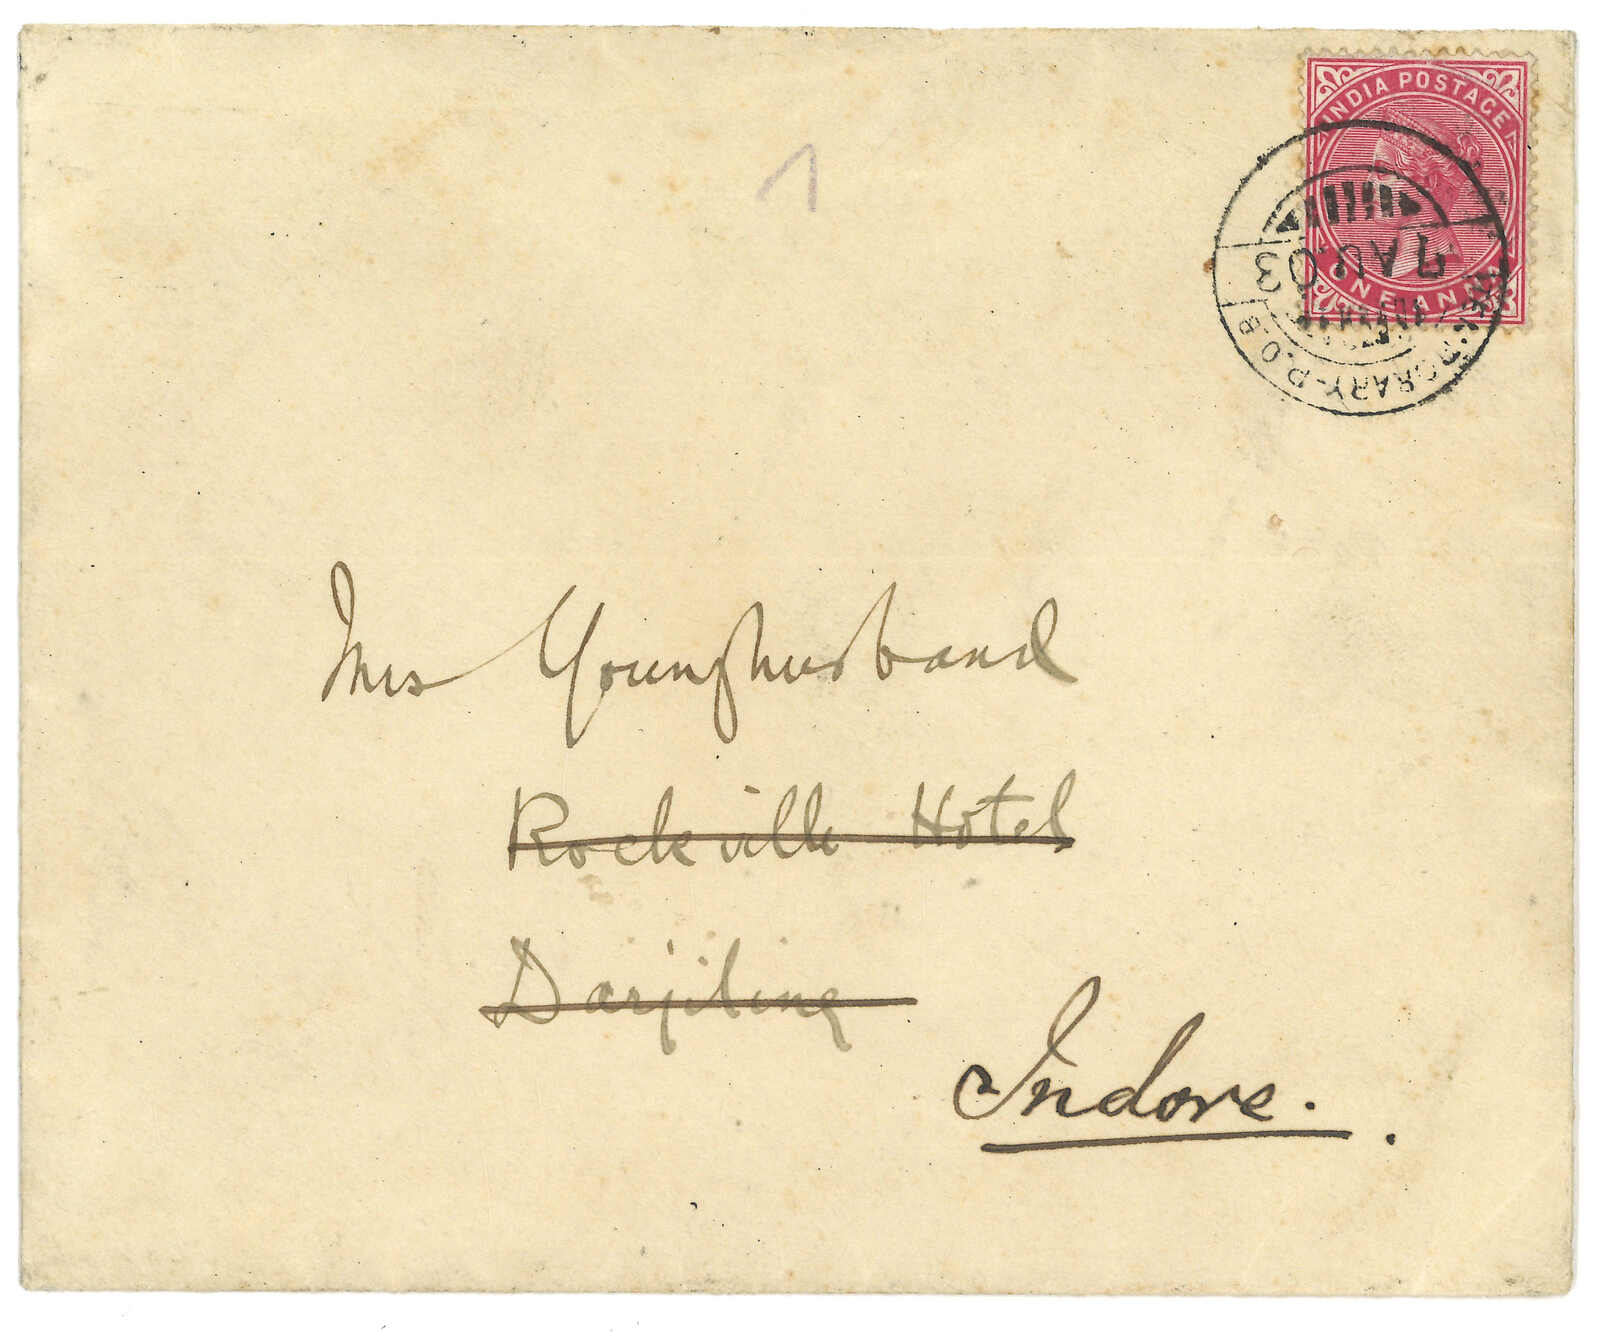 INDIA POSTAGE
ONE ANNA
7 AU 03
1
Mrs Younghusband
Rockville Hotel
Darjiling
Indore.